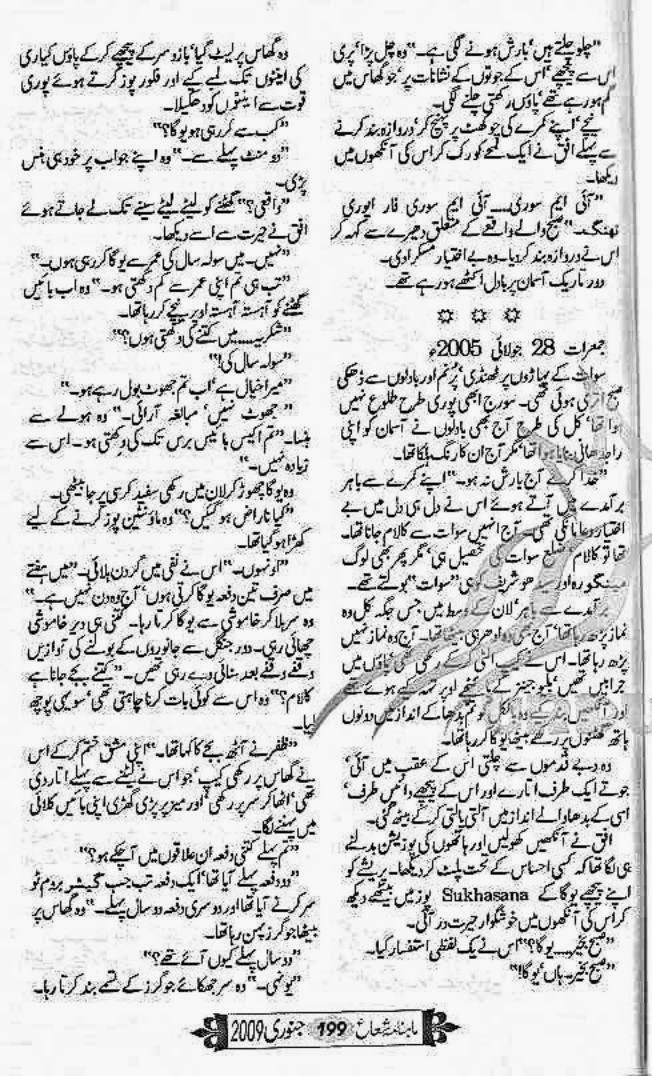 ”چلو چلتے ہیں‘ بارش ہونے لگی ہے۔“ وہ چل پڑا‘ پری
اس سے پیچھے‘ اس کے جوتوں کے نشانات پر‘ جو گھاس میں
گم ہو رہے تھے‘ پاؤں رکھتی چلنے لگی۔
نیچے‘ اپنے کمرے کی چوکھٹ پر پہنچ کر‘ دروازہ بند کرنے
سے پہلے افق نے ایک لمحے کو رک کر اس کی آنکھوں میں
دیکھا۔
”آئی ایم سوری.... آئی ایم سوری فار ایوری
تھنگ۔“ صبح والے واقعے کے متعلق دھیرے سے کہہ کر
اس نے دروازہ بند کر دیا۔ وہ بے اختیار مسکرا دی۔
دور تاریک آسمان پر بادل اکٹھے ہو رہے تھے۔
☼ ☼ ☼
جمعرات 28 جولائی 2005ء
سوات کے پہاڑوں پر ٹھنڈی‘ پُرنم اور بادلوں سے ڈھکی
صبح اتری ہوئی تھی۔ سورج ابھی پوری طرح طلوع نہیں
ہوا تھا‘ کل کی طرح آج بھی بادلوں نے آسمان کو اپنی
راجدھانی بنایا ہوا تھا‘ مگر آج ان کا رنگ ہلکا تھا۔
”خدا کرے آج بارش نہ ہو۔“ اپنے کمرے سے باہر
برآمدے میں آتے ہوئے اس نے دل ہی دل میں بے
اختیار دعا مانگی تھی۔ آج انہیں سوات سے کالام جانا تھا۔
تھا تو کالام‘ ضلع سوات کی تحصیل ہی‘ مگر پھر بھی لوگ
مینگورہ اور سیدو شریف کو ہی ”سوات“ بولتے تھے۔
برآمدے سے باہر‘ لان کے وسط میں جس جگہ کل وہ
نماز پڑھ رہا تھا‘ آج بھی وہ ادھر ہی بیٹھا تھا۔ آج وہ نماز نہیں
پڑھ رہا تھا۔ اس نے کیپ الٹی کر کے رکھی تھی‘ پاؤں میں
جرابیں تھیں‘ نیلی جینز کے پائنچے اوپر تہہ کیے ہوئے تھے
اور آنکھیں بند کیے وہ بالکل گوتم بدھا کے انداز میں دونوں
ہاتھ گھٹنوں پر رکھے بیٹھا یوگا کر رہا تھا۔
وہ دبے قدموں سے چلتی اس کے عقب میں آئی‘
جوتے ایک طرف اتارے اور اس کے پیچھے دائیں طرف‘
اسی کے بدھا والے انداز میں آلتی پالتی کر کے بیٹھ گئی۔
افق نے آنکھیں کھولیں اور ہاتھوں کی پوزیشن بدلنے
ہی لگا تھا کہ کسی احساس کے تحت پلٹ کر دیکھا۔ پریشے کو
اپنے پیچھے یوگا کے Sukhasana پوز میں بیٹھے دیکھ
کر اس کی آنکھوں میں خوشگوار حیرت در آئی۔
”صبح بخیر.... یوگا؟“ اس نے یک لفظی استفسار کیا۔
”صبح بخیر۔ ہاں‘ یوگا!“
وہ گھاس پر لیٹ گیا‘ بازو سر کے پیچھے کر کے پاؤں کیاری
کی اینٹوں تک لمبے کیے اور فلور پوز کرتے ہوئے پوری
قوت سے اینٹوں کو دھکیلا۔
”کب سے کر رہی ہو یوگا؟“
”دو منٹ پہلے سے۔“ وہ اپنے جواب پر خود ہی ہنس
پڑی۔
”واقعی؟“ گھٹنے کو لیٹے لیٹے سینے تک لے جاتے ہوئے
افق نے حیرت سے اسے دیکھا۔
”نہیں۔ میں سولہ سال کی عمر سے یوگا کر رہی ہوں۔“
”تب ہی تم اپنی عمر سے کم دکھتی ہو۔“ وہ اب بائیں
گھٹنے کو آہستہ آہستہ اوپر نیچے کر رہا تھا۔
”شکریہ.... میں کتنے کی دکھتی ہوں؟“
”سولہ سال کی!“
”میرا خیال ہے‘ اب تم جھوٹ بول رہے ہو۔“
”جھوٹ نہیں‘ مبالغہ آرائی۔“ وہ ہولے سے
ہنسا۔ ”تم اکیس بائیس برس تک کی دکھتی ہو۔ اس سے
زیادہ نہیں۔“
وہ یوگا چھوڑ کر لان میں رکھی سفید کرسی پر جا بیٹھی۔
”کیا ناراض ہو گئیں؟“ وہ ماؤنٹین پوز کرنے کے لیے
کھڑا ہو گیا تھا۔
”اونہوں۔“ اس نے نفی میں گردن ہلائی۔ ”میں ہفتے
میں صرف تین دفعہ یوگا کرتی ہوں‘ آج وہ دن نہیں ہے۔“
وہ سر ہلا کر خاموشی سے یوگا کرتا رہا۔ کتنی ہی دیر خاموشی
چھائی رہی۔ دور جنگل سے جانوروں کے بولنے کی آوازیں
وقفے وقفے بعد سنائی دے رہی تھیں۔ ”کتنے بجے جانا ہے
کالام؟“ وہ اس سے کوئی بات کرنا چاہتی تھی‘ سو یہی پوچھ
لیا۔
”ظفر نے آٹھ بجے کا کہا تھا۔“ اپنی مشق ختم کر کے اس
نے گھاس پر رکھی کیپ‘ جو اس نے لیٹنے سے پہلے اتار دی
تھی‘ اٹھا کر سر پر رکھی‘ اور میز پر پڑی گھڑی اپنی بائیں کلائی
میں پہننے لگا۔
”تم پہلے کتنی دفعہ ان علاقوں میں آ چکے ہو؟“
”دو دفعہ پہلے آیا تھا‘ ایک دفعہ تب جب گیشر بروم ٹو
سر کرنے آیا تھا اور دوسری دفعہ دو سال پہلے۔“ وہ گھاس پر
بیٹھا جوگرز پہن رہا تھا۔
”دو سال پہلے کیوں آئے تھے؟“
”یونہی۔“ وہ سر جھکائے جوگرز کے تسمے بند کرتا رہا۔
ماہنامہ شعاع 199 جنوری 2009